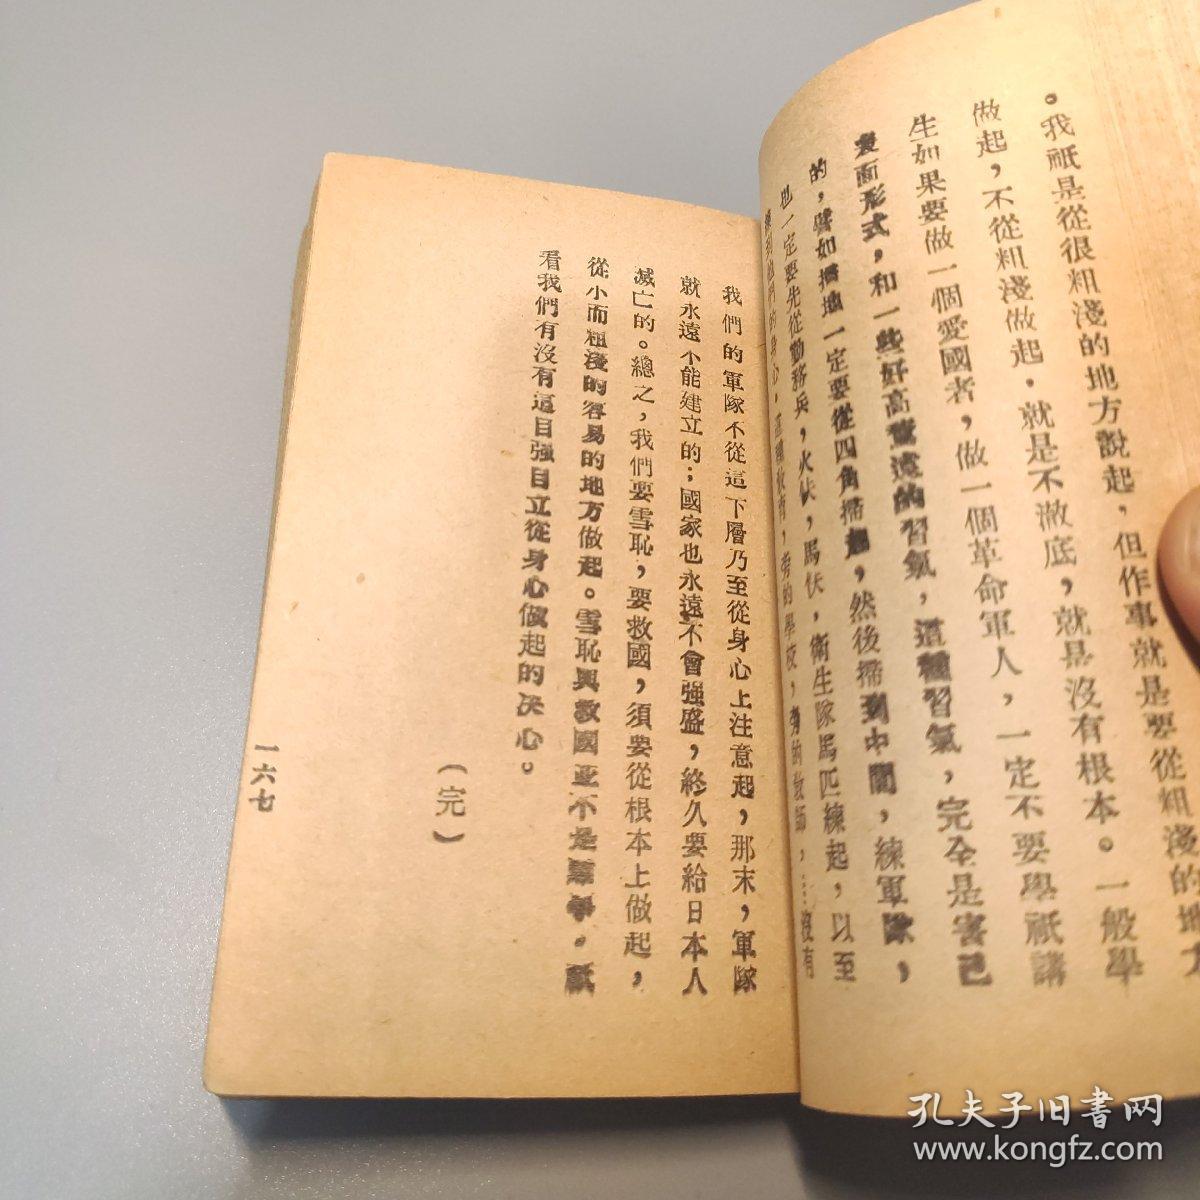 。我祇是從很粗淺的地方說起，但作事就是要從粗淺的地方
做起，不從粗淺做起．就是不澈底，就是沒有根本。一般學
生如果要做一個愛國者，做一個革命軍人，一定不要學祇講
表面形式，和一些好高騖遠的習氣，這種習氣，完全是害己
的，譬如掃地一定要從四角掃起，然後掃到中間，練軍隊，
也一定要先從勤務兵，火伕，馬伕，衛生隊馬匹練起，以至
們的身心，旁的學校，旁的教師，沒有
我們的軍隊不從這下層乃至從身心上注意起，那末，軍隊
就永遠不能建立的；國家也永遠不會強盛，終久要給日本人
滅亡的。總之，我們要雪恥，要救國，須要從根本上做起，
從小而粗淺的容易的地方做起。雪恥與救國並不是難事。祇
看我們有沒有這自強自立從身心做起的決心。
（完）
一六七
孔夫子旧書网
www.kongfz.com